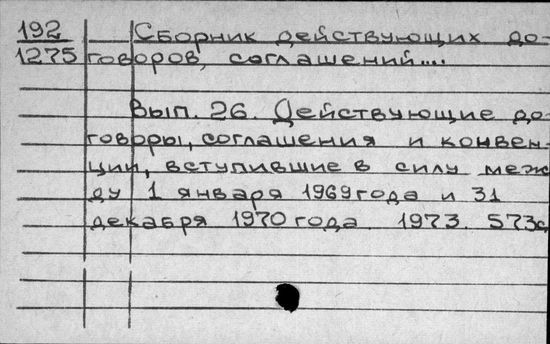 192 Сборник действующих до-
1275 говоров, соглашений....
Вып. 26. Действующие до-
говоры, соглашения и конвен-
ции, вступившие в силу меж
ду 1 января 1969 года и 31
декабря 1970 года. 1973. 573с